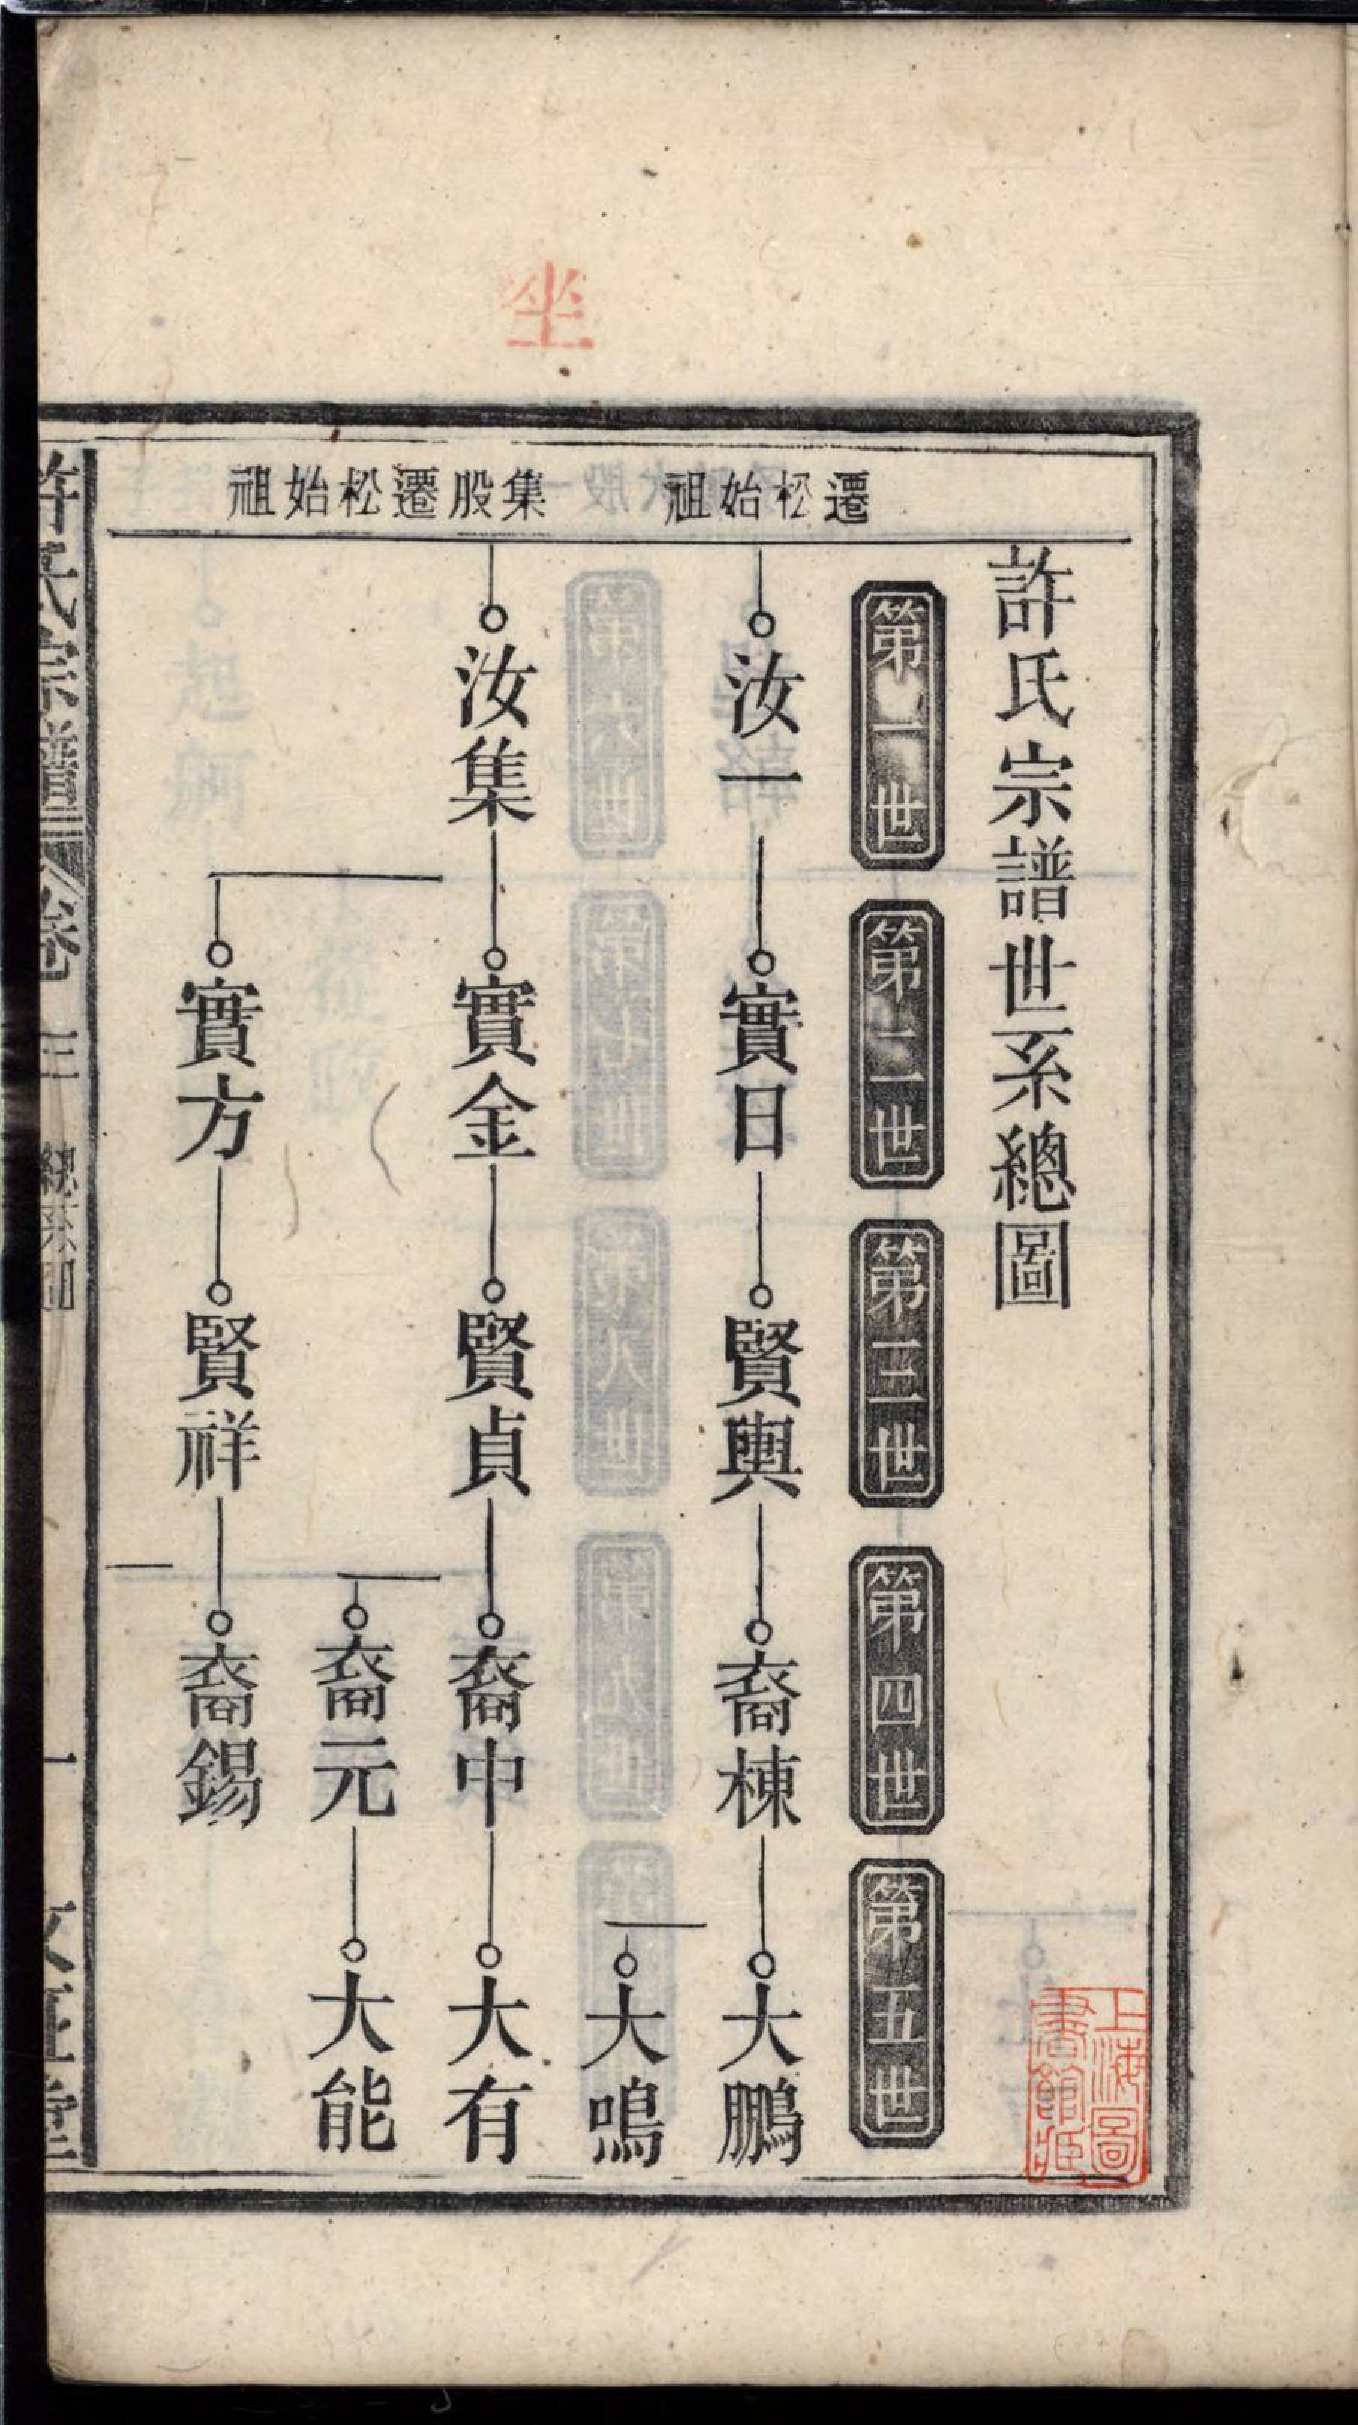 許氏宗譜世系總圖
第一世
第二世
第三世
第四世
第五世
遷松始祖
汝一
實日
賢輿
裔棟
大鵬
大鳴
集股遷松始祖
汝集
實金
賢貞
裔中
大有
裔元
大能
實方
賢祥
裔錫
許氏宗譜
卷三
總系圖
一
坐
上海圖
書館藏